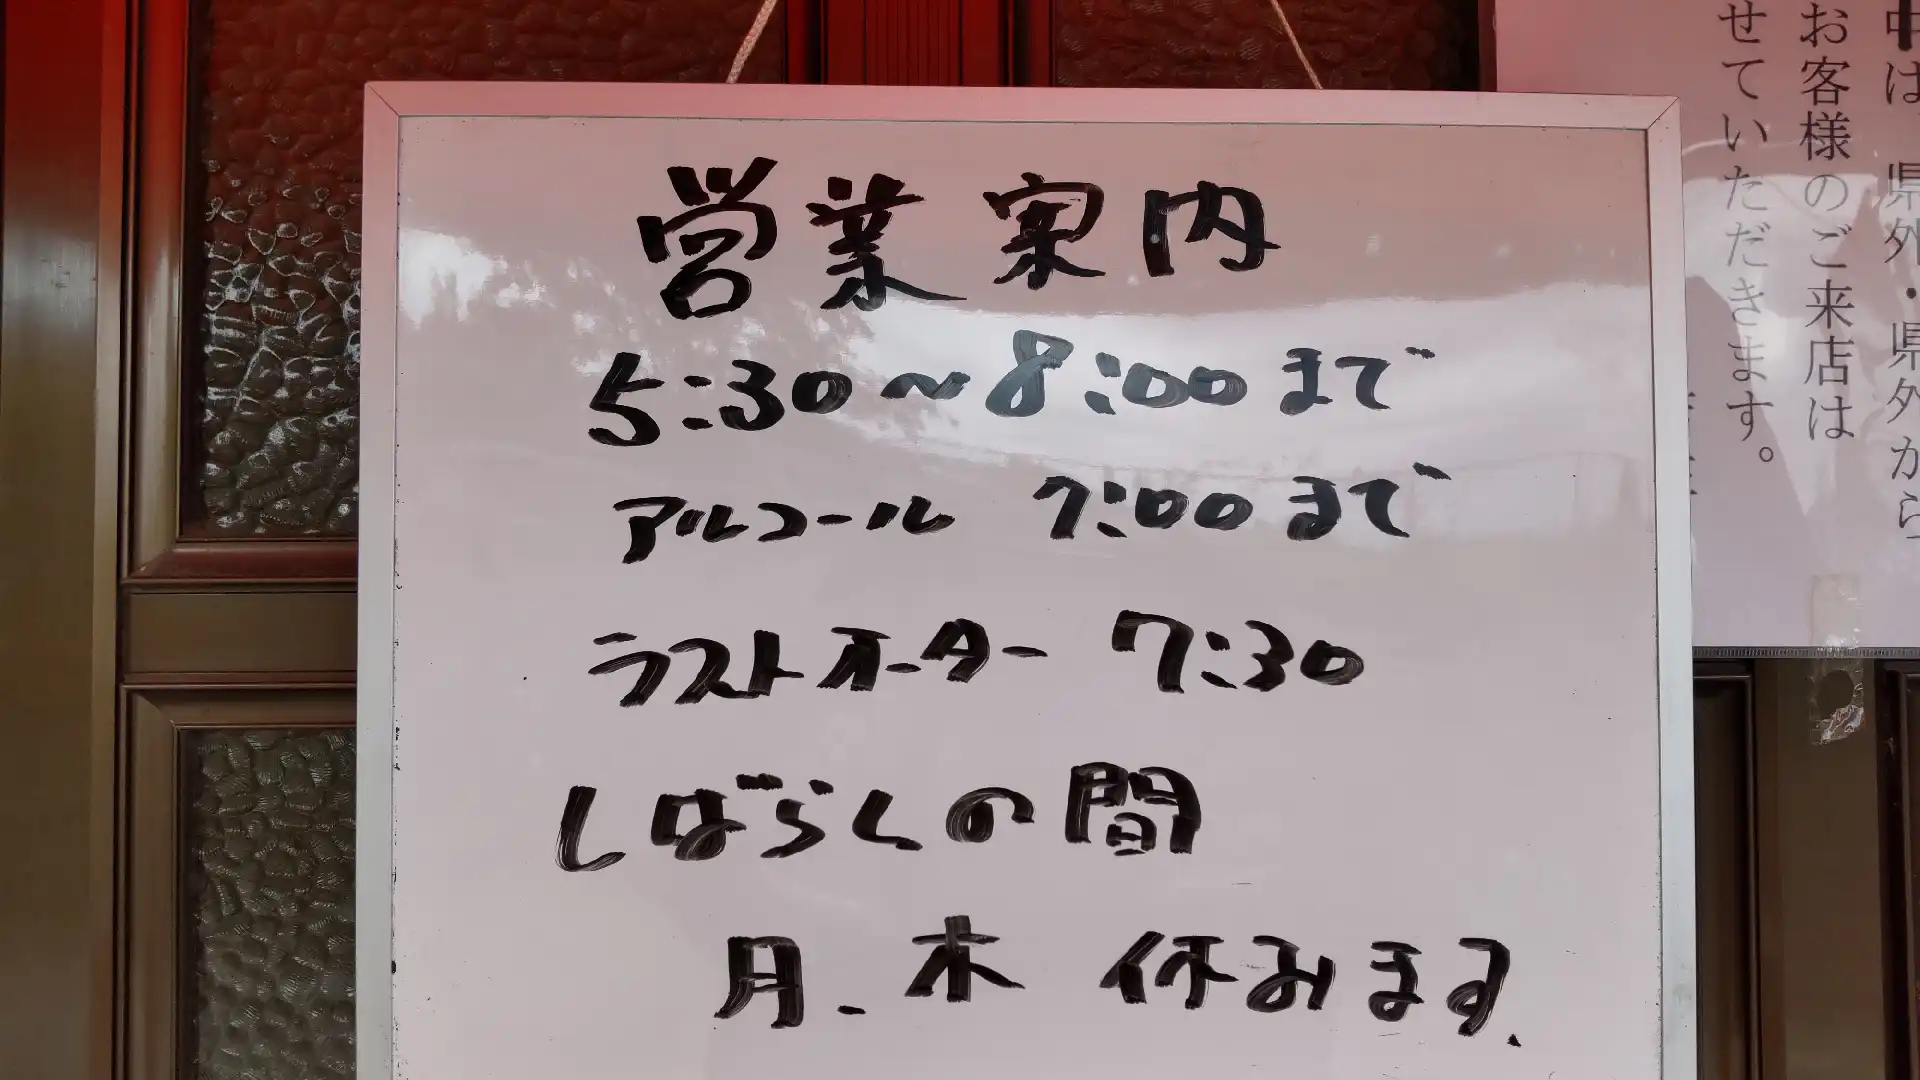 営業案内
5:30～8:00まで
アルコール 7:00まで
ラストオーター 7:30
しばらくの間
月、木 休みます、
中は 県外・県外から
お客様のご来店は
せていただきます。